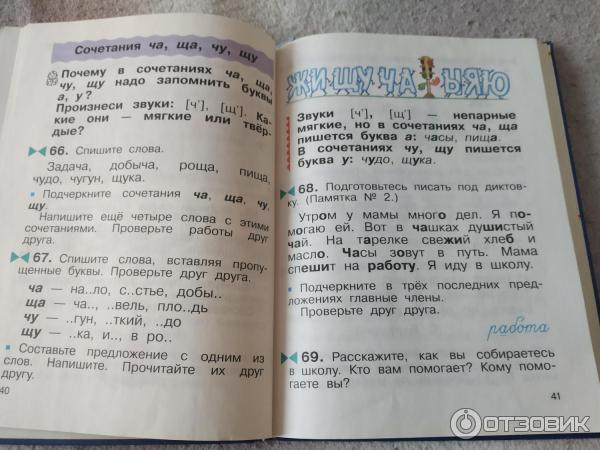 Сочетания ча, ща, чу, щу
Почему в сочетаниях ча, ща,
чу, щу надо запомнить буквы
а, у?
Произнеси звуки: [ч’], [щ’]. Ка-
кие они — мягкие или твёр-
дые?
66. Спишите слова.
Задача, добыча, роща, пища,
чудо, чугун, щука.
Подчеркните сочетания ча, ща, чу,
щу.
Напишите ещё четыре слова с этими
сочетаниями. Проверьте работы друг
друга.
67. Спишите слова, вставляя пропу-
щенные буквы. Проверьте друг друга.
ча — на..ло, с..стье, добы..
ща — ча.., ..вель, пло..дь
чу — ..гун, ..ткий, ..до
щу — ..ка, и.., в ро..
Составьте предложение с одним из
слов. Напишите. Прочитайте их друг
другу.
40
ЖИ ШУ ЧА Ы Я Ю
Звуки [ч’], [щ’] — непарные
мягкие, но в сочетаниях ча, ща
пишется буква а: часы, пища.
В сочетаниях чу, щу пишется
буква у: чудо, щука.
68. Подготовьтесь писать под диктов-
ку. (Памятка № 2.)
Утром у мамы много дел. Я по-
могаю ей. Вот в чашках душистый
чай. На тарелке свежий хлеб и
масло. Часы зовут в путь. Мама
спешит на работу. Я иду в школу.
Подчеркните в трёх последних пред-
ложениях главные члены.
Проверьте друг друга.
работа
69. Расскажите, как вы собираетесь
в школу. Кто вам помогает? Кому помо-
гаете вы?
41
ОТЗОВИК